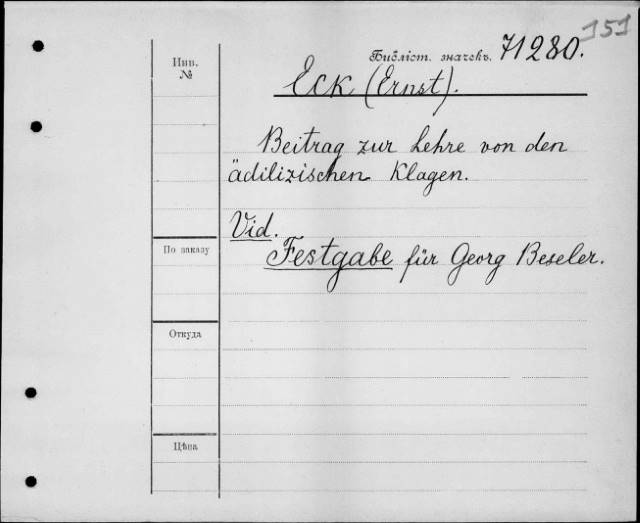 151
Инв. №
Библіот. значекъ. 71280.
Eck (Ernst).
Beitrag zur Lehre von den
ädilizischen Klagen.
Vid.
Festgabe für Georg Beseler.
По заказу
Откуда
Цѣна